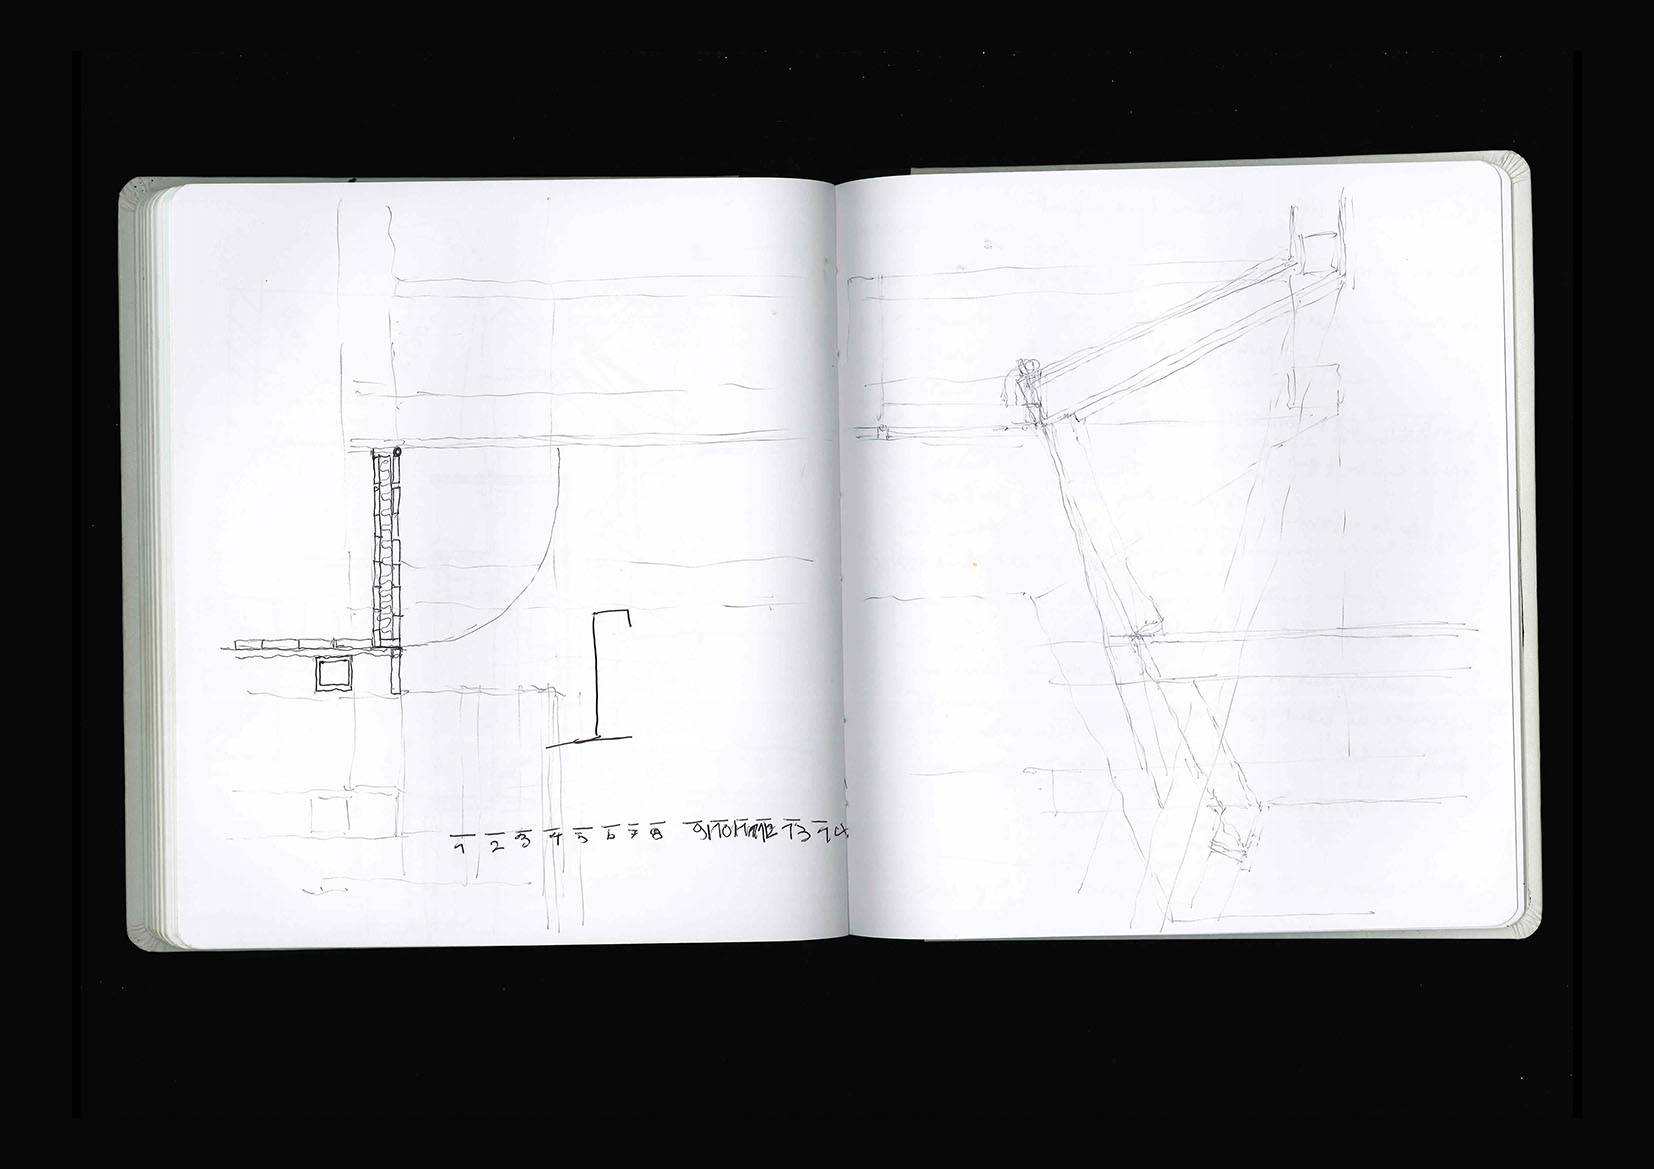 1 2 3 4 5 6 7 8 9 10 11 12 13 14